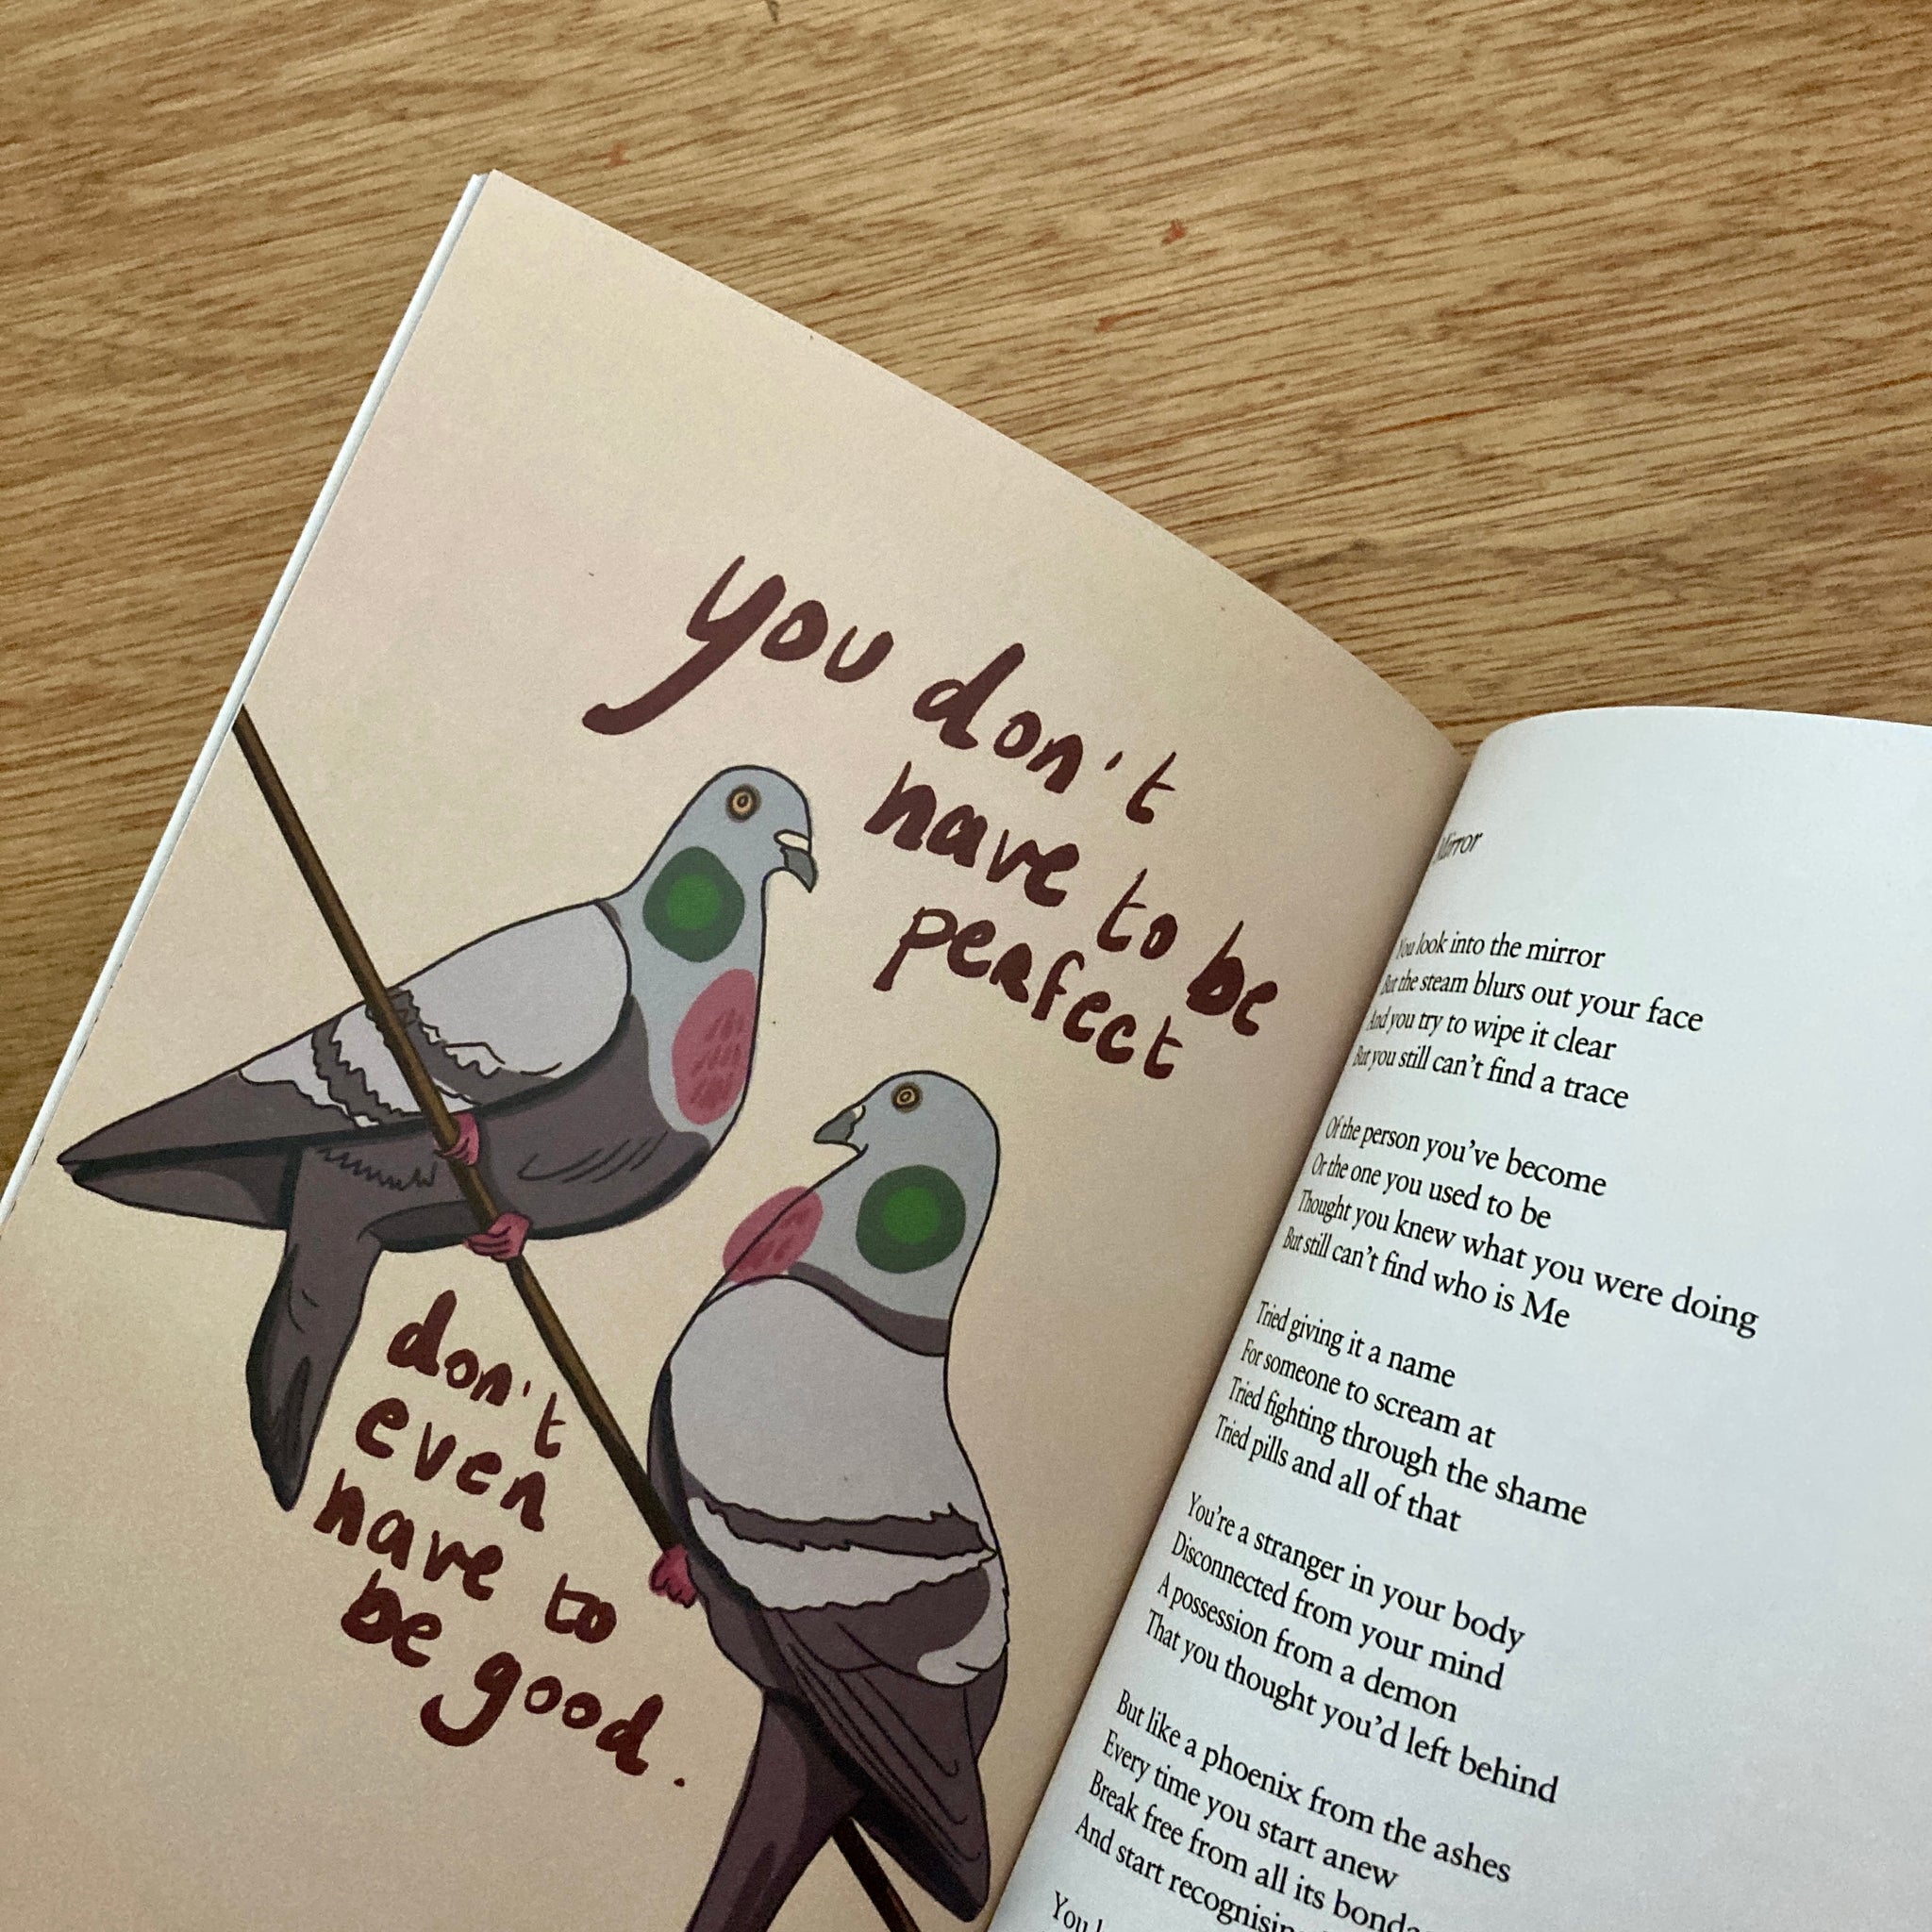 you don't
have to be
perfect
don't
even
have to
be good.
Mirror
You look into the mirror
But the steam blurs out your face
And you try to wipe it clear
But you still can't find a trace
Of the person you've become
Or the one you used to be
Thought you knew what you were doing
But still can't find who is Me
Tried giving it a name
For someone to scream at
Tried fighting through the shame
Tried pills and all of that
You're a stranger in your body
Disconnected from your mind
A possession from a demon
That you thought you'd left behind
But like a phoenix from the ashes
Every time you start anew
Break free from all its
And start
You